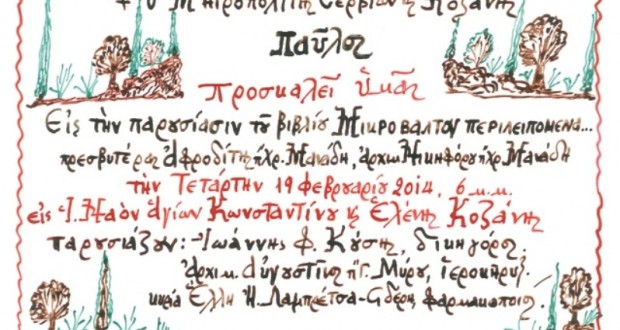 † Ὁ Μητροπολίτης Σερβίων κ Κοζάνης
Παῦλος
προσκαλεῖ ὑμᾶς
Εἰς τὴν παρουσίασιν τοῦ βιβλίου Μικροβάλτου περιλειπόμενα...
πρεσβυτέρας Ἀφροδίτης π. Χρ. Μανάδη, ἀρχιμ. Νικηφόρου π. Χρ. Μανάδη
τὴν Τετάρτην 19 Φεβρουαρίου 2014, 6 μ.μ.
εἰς Ἱ. Ναὸν ἁγίων Κωνσταντίνου κ Ἑλένης Κοζάνης
παρουσιάζουν: Ἰωάννης Φ. δικηγόρος
ἀρχιμ. Αὐγουστῖνος Γ. Μύρου, ἱεροκήρυξ.
κυρία Ἕλλη Η. Λαμπρέτσα - φαρμακοποιός.